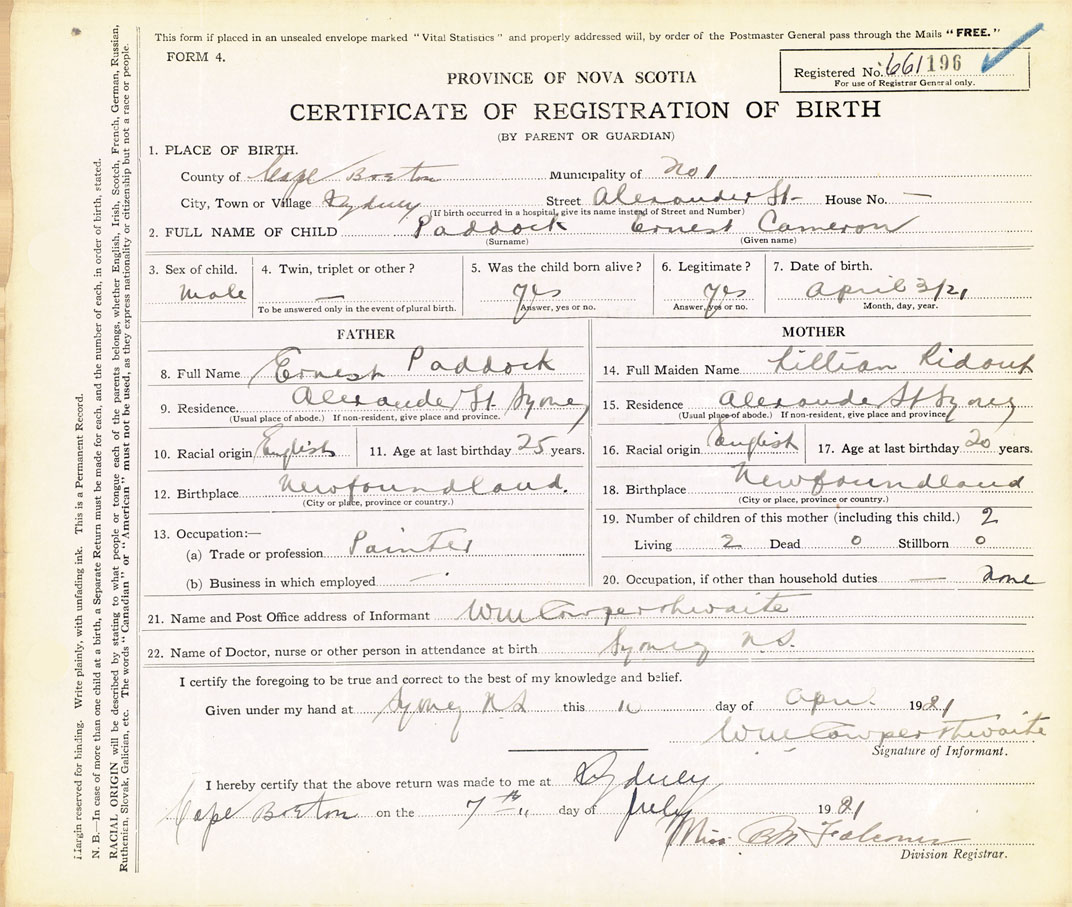 This form if placed in an unsealed envelope marked "Vital Statistics" and properly addressed will, by order of the Postmaster General pass through the Mails "FREE."
FORM 4.
Registered No. 661196
For use of Registrar General only.
PROVINCE OF NOVA SCOTIA
CERTIFICATE OF REGISTRATION OF BIRTH
(BY PARENT OR GUARDIAN)
1. PLACE OF BIRTH.
County of Cape Breton Municipality of No 1
City, Town or Village Sydney Street Alexander St- House No. —
(If birth occurred in a hospital, give its name instead of Street and Number)
2. FULL NAME OF CHILD Paddock Ernest Cameron
(Surname) (Given name)
3. Sex of child. 4. Twin, triplet or other? 5. Was the child born alive? 6. Legitimate? 7. Date of birth.
Male — yes yes April 3/21
To be answered only in the event of plural birth. Answer, yes or no. Answer, yes or no. Month, day, year.
FATHER
8. Full Name Ernest Paddock
9. Residence. Alexander St. Syney
(Usual place of abode.) If non-resident, give place and province.
10. Racial origin English 11. Age at last birthday 25 years.
12. Birthplace Newfoundland.
(City or place, province or country.)
13. Occupation:—
(a) Trade or profession Painter
(b) Business in which employed —
MOTHER
14. Full Maiden Name Lillian Ridout
15. Residence Alexander St Syney
(Usual place of abode.) If non-resident, give place and province
16. Racial origin English 17. Age at last birthday 20 years.
18. Birthplace Newfoundland
(City or place, province or country.)
19. Number of children of this mother (including this child.) 2
Living 2 Dead 0 Stillborn 0
20. Occupation, if other than household duties — none
21. Name and Post Office address of Informant Wm Cowperthwaite
22. Name of Doctor, nurse or other person in attendance at birth Syney N.S.
I certify the foregoing to be true and correct to the best of my knowledge and belief.
Given under my hand at Syney N.S this day of April 1921
Wm Cowperthwaite
Signature of Informant.
I hereby certify that the above return was made to me at Sydney
Cape Breton on the 7th day of July 1921
Miss B M Falconer
Division Registrar.
Margin reserved for binding. Write plainly, with unfading ink. This is a Permanent Record.
N. B.—In case of more than one child at a birth, a Separate Return must be made for each, and the number of each, in order of birth, stated.
RACIAL ORIGIN will be described by stating to what people or tongue each of the parents belongs, whether English, Irish, Scotch, French, German, Russian,
Ruthenian, Slovak, Galician, etc. The words "Canadian" or "American" must not be used, as they express nationality or citizenship but not a race or people.